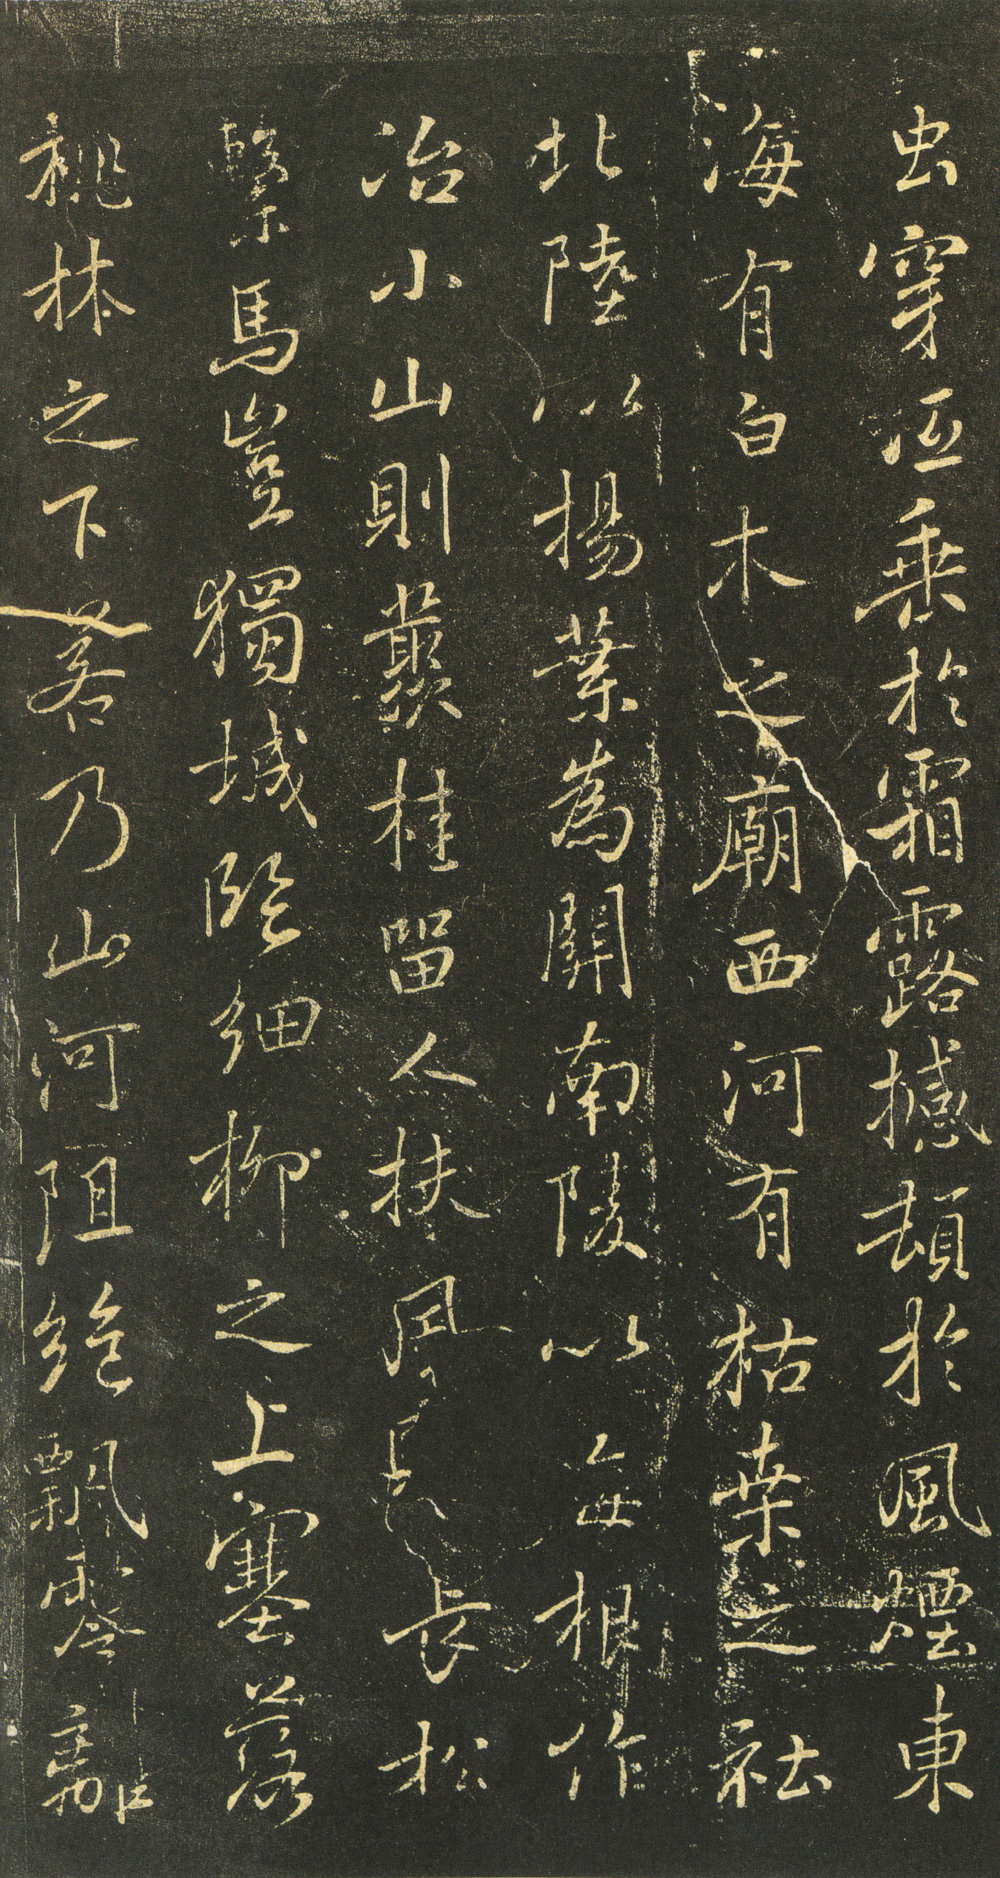 虫穿低垂於霜露撼頓於風煙東
海有白木之廟西河有枯桑之社
北陸以楊葉為關南陵以每根作
冶小山則叢桂留人扶風長松
繫馬豈獨城臨細柳之上塞落
桃林之下若乃山河阻絕飄零離